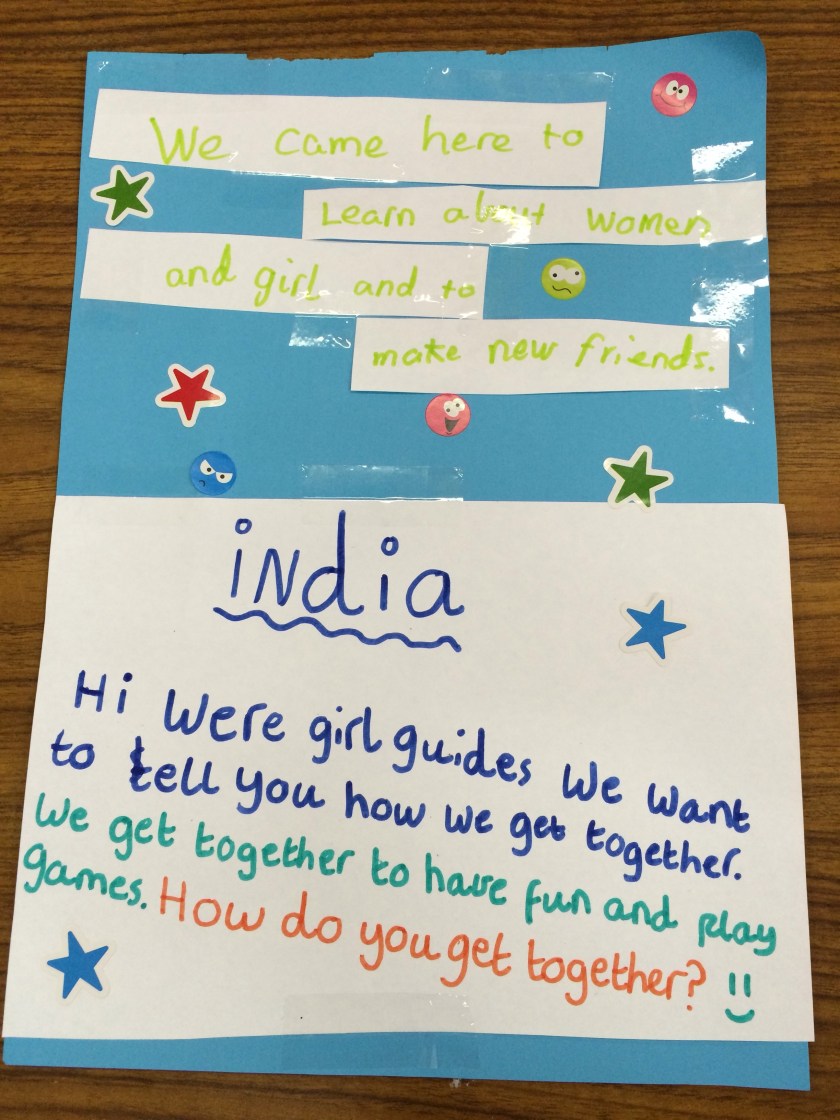 We came here to
Learn about women
and girl and to
make new friends.
india
Hi Were girl guides We want
to tell you how we get together.
We get together to have fun and play
games. How do you get together?